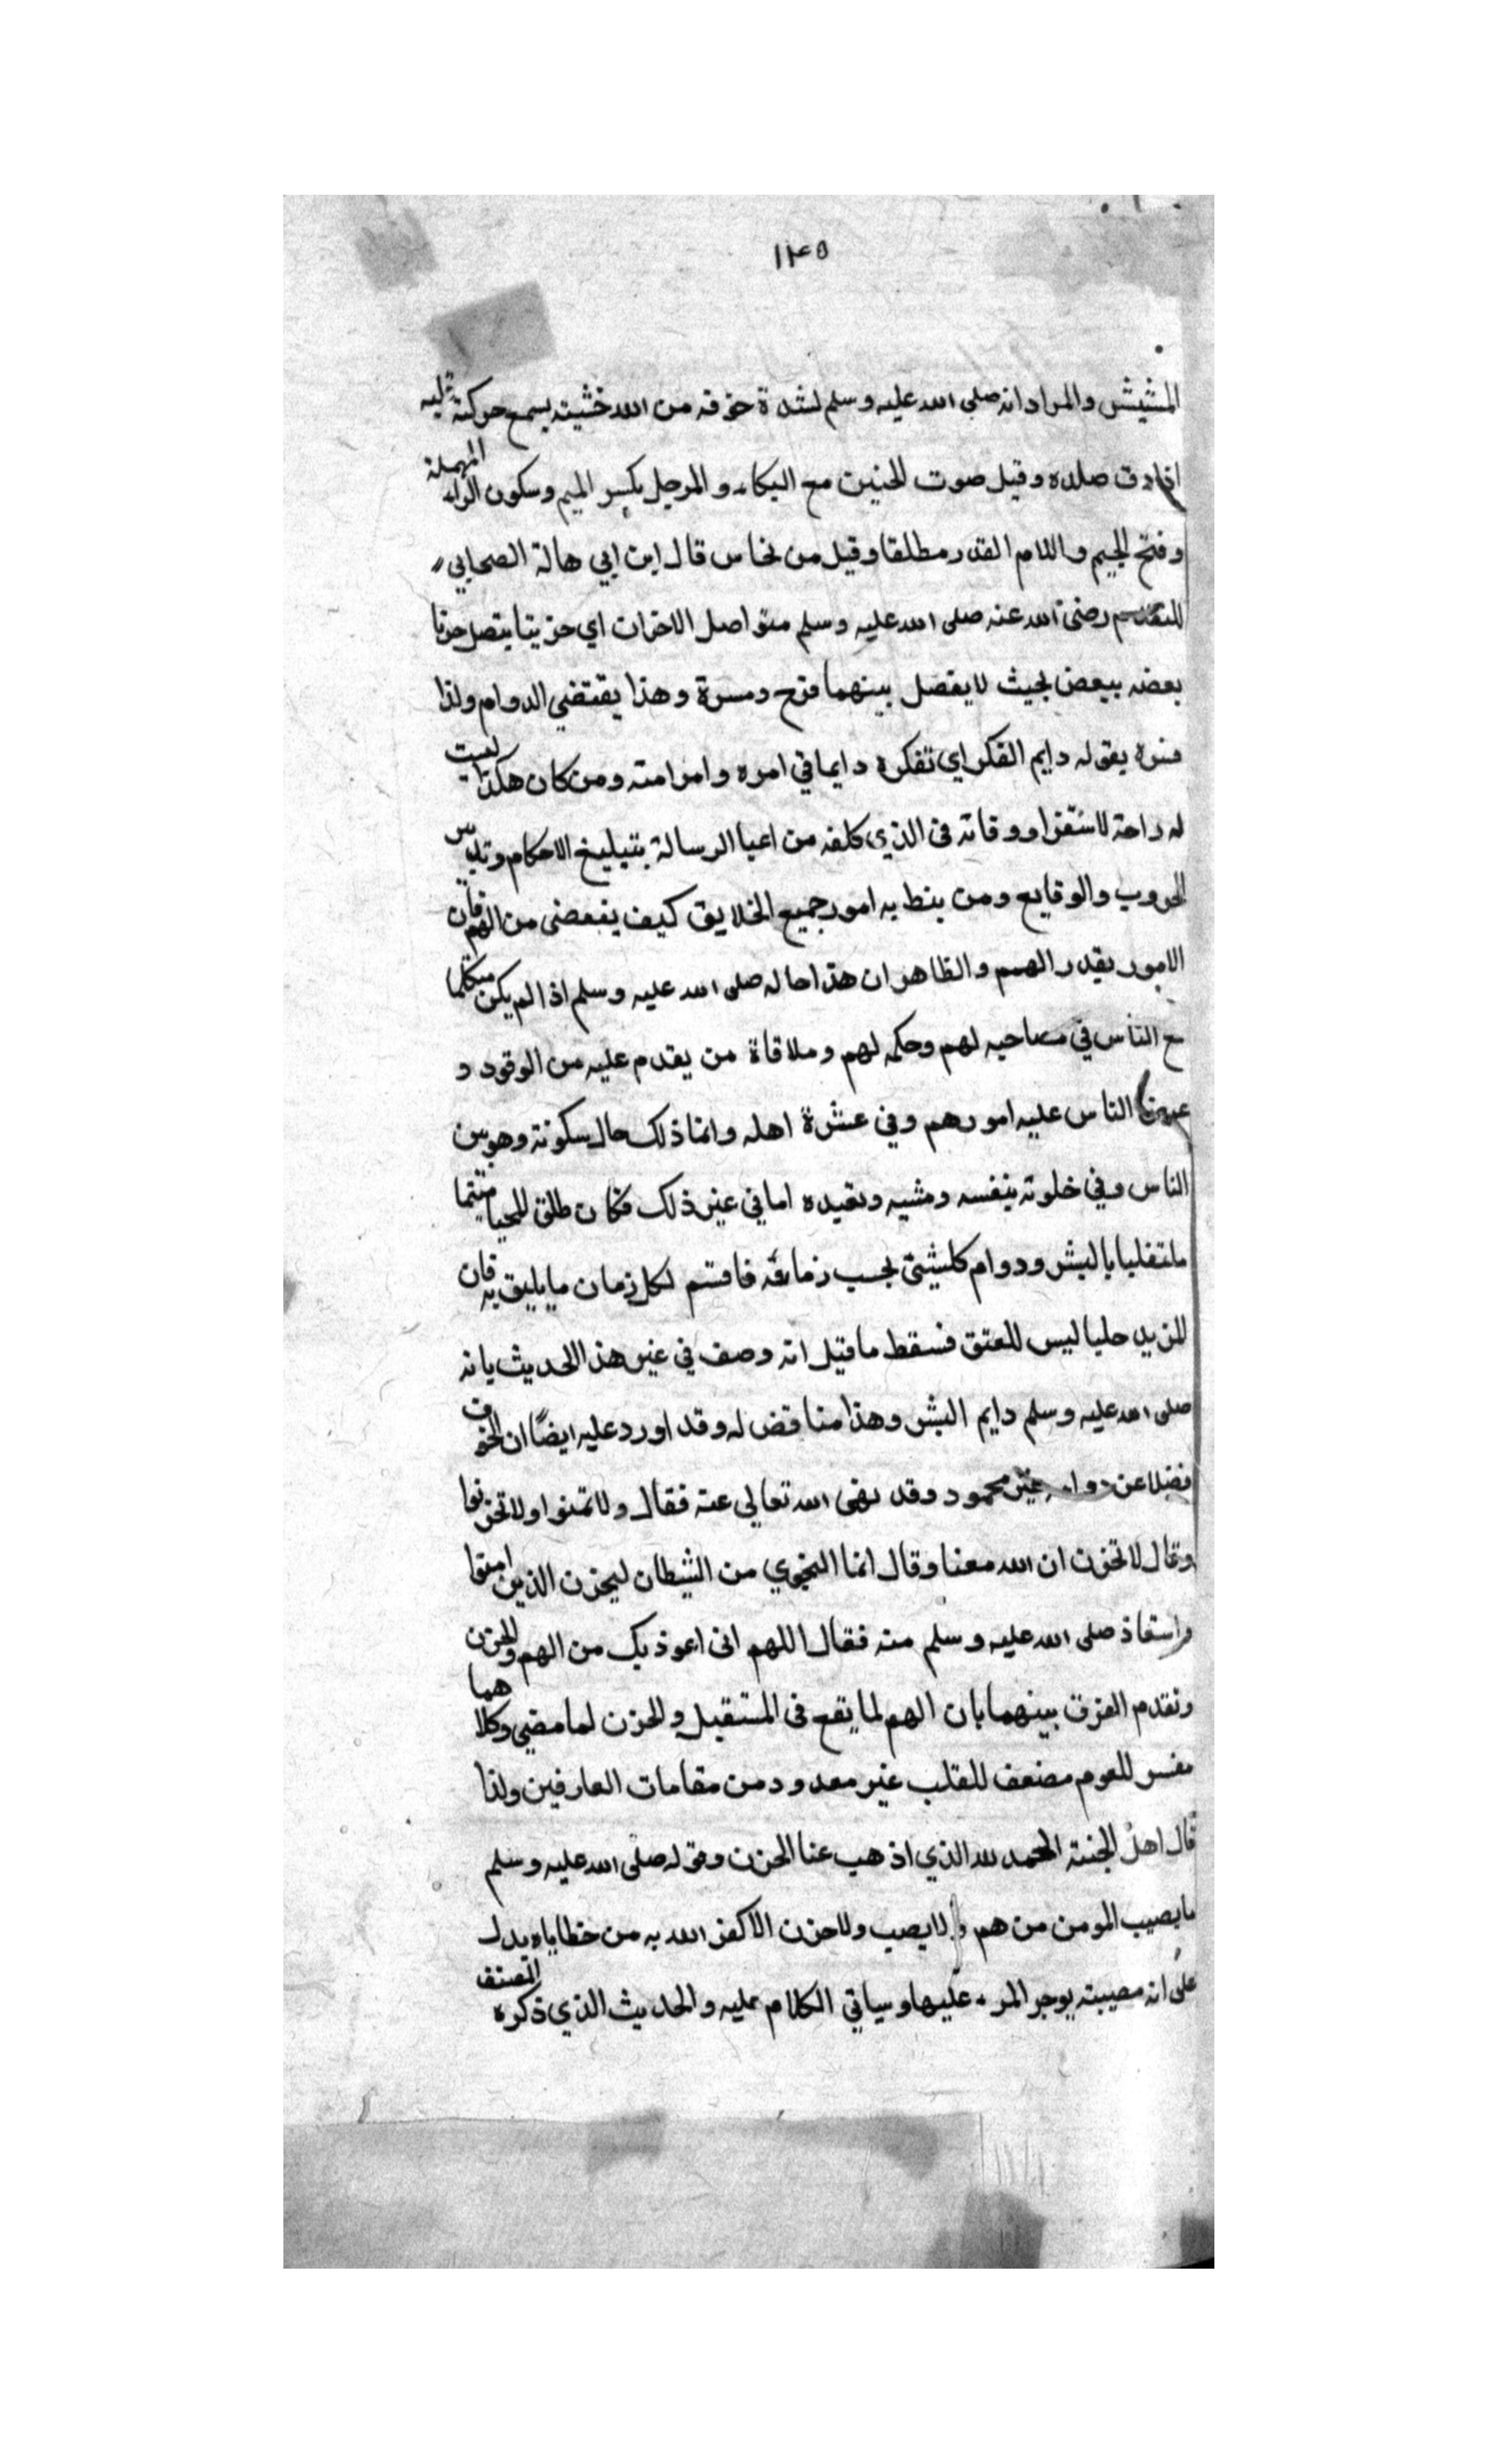 ١٣٥
النشيش والمراد انه صلى الله عليه وسلم لشدة خوفه من الله خشيته يسمع حركة قلبه
صلاه وقيل صوت الحنين مع البكاء والمرجل بكسر الميم وسكون الراء المهملة
وفتح الجيم واللام القدر مطلقا وقيل من نحاس قال ابن ابي هالة الصحابي
المتقدم رضى الله عنه صلى الله عليه وسلم متواصل الاحزان اي حزينا يتصل حزنا
بعضه ببعض بحيث لا يفصل بينهما فرح ومسرة وهذا يقتضي الدوام ولذا
فسره بقوله دايم الفكر اي تفكره دايما في امره وامر امته ومن كان هكذا ليست
له راحة لاستغراو وقاته فى الذي كلفه من اعبا الرسالة بتبليغ الاحكام وتدبير
الحروب والوقايع ومن ينط به امور جميع الخلايق كيف يفعضى من الهم فان
الامور بقدر الهمم والظاهر ان هذا حاله صلى الله عليه وسلم اذا لم يكن متكلما
مع الناس في مصاحبه لهم وحكمه لهم وملاقاة من يقدم عليه من الوقود و
الناس عليه امورهم وفي عشرة اهله وانما ذلك حال سكونة وهو بين
الناس وفي خلوته بنفسه ومشيه وتعبده اما في غير ذلك فكان طلق المحيا متبسما
ملتفليا بالبشر ودوام كلشيئ بحسب زمانه فاقسم لكل زمان ما يليق به فان
للمزيد حليا ليس للعتق فسقط ما قيل انه وصف في غير هذ الحديث بانه
صلى الله عليه وسلم دايم البشر وهذا مناقض له وقد اورد عليه ايضًا ان الخوف
فضلا عن دوامه غير محمود وقد نهى الله تعالى عنه فقال ولا تهنوا ولا تحزنوا
وقال لا تحزن ان الله معنا وقال انما النجوي من الشيطان ليحزن الذين امنوا
واستعاذ صلى الله عليه وسلم منه فقال اللهم انى اعوذ بك من الهم والحزن
وتقدم الفرق بينهما بان الهم لما يقع فى المستقبل والحزن لما مضى وكلاهما
مفسر للعوم مضعف للقلب غير معدود من مقامات العارفين ولذا
قال اهل الجنة الحمد لله الذي اذهب عنا الحزن وقوله صلى الله عليه وسلم
ما يصيب المومن من هم ولا يصب ولا حزن الا كفر الله به من خطاياه يدل
على انه مصيبته يوجر المرء عليها وسياتي الكلام عليه والحديث الذي ذكره المصنف